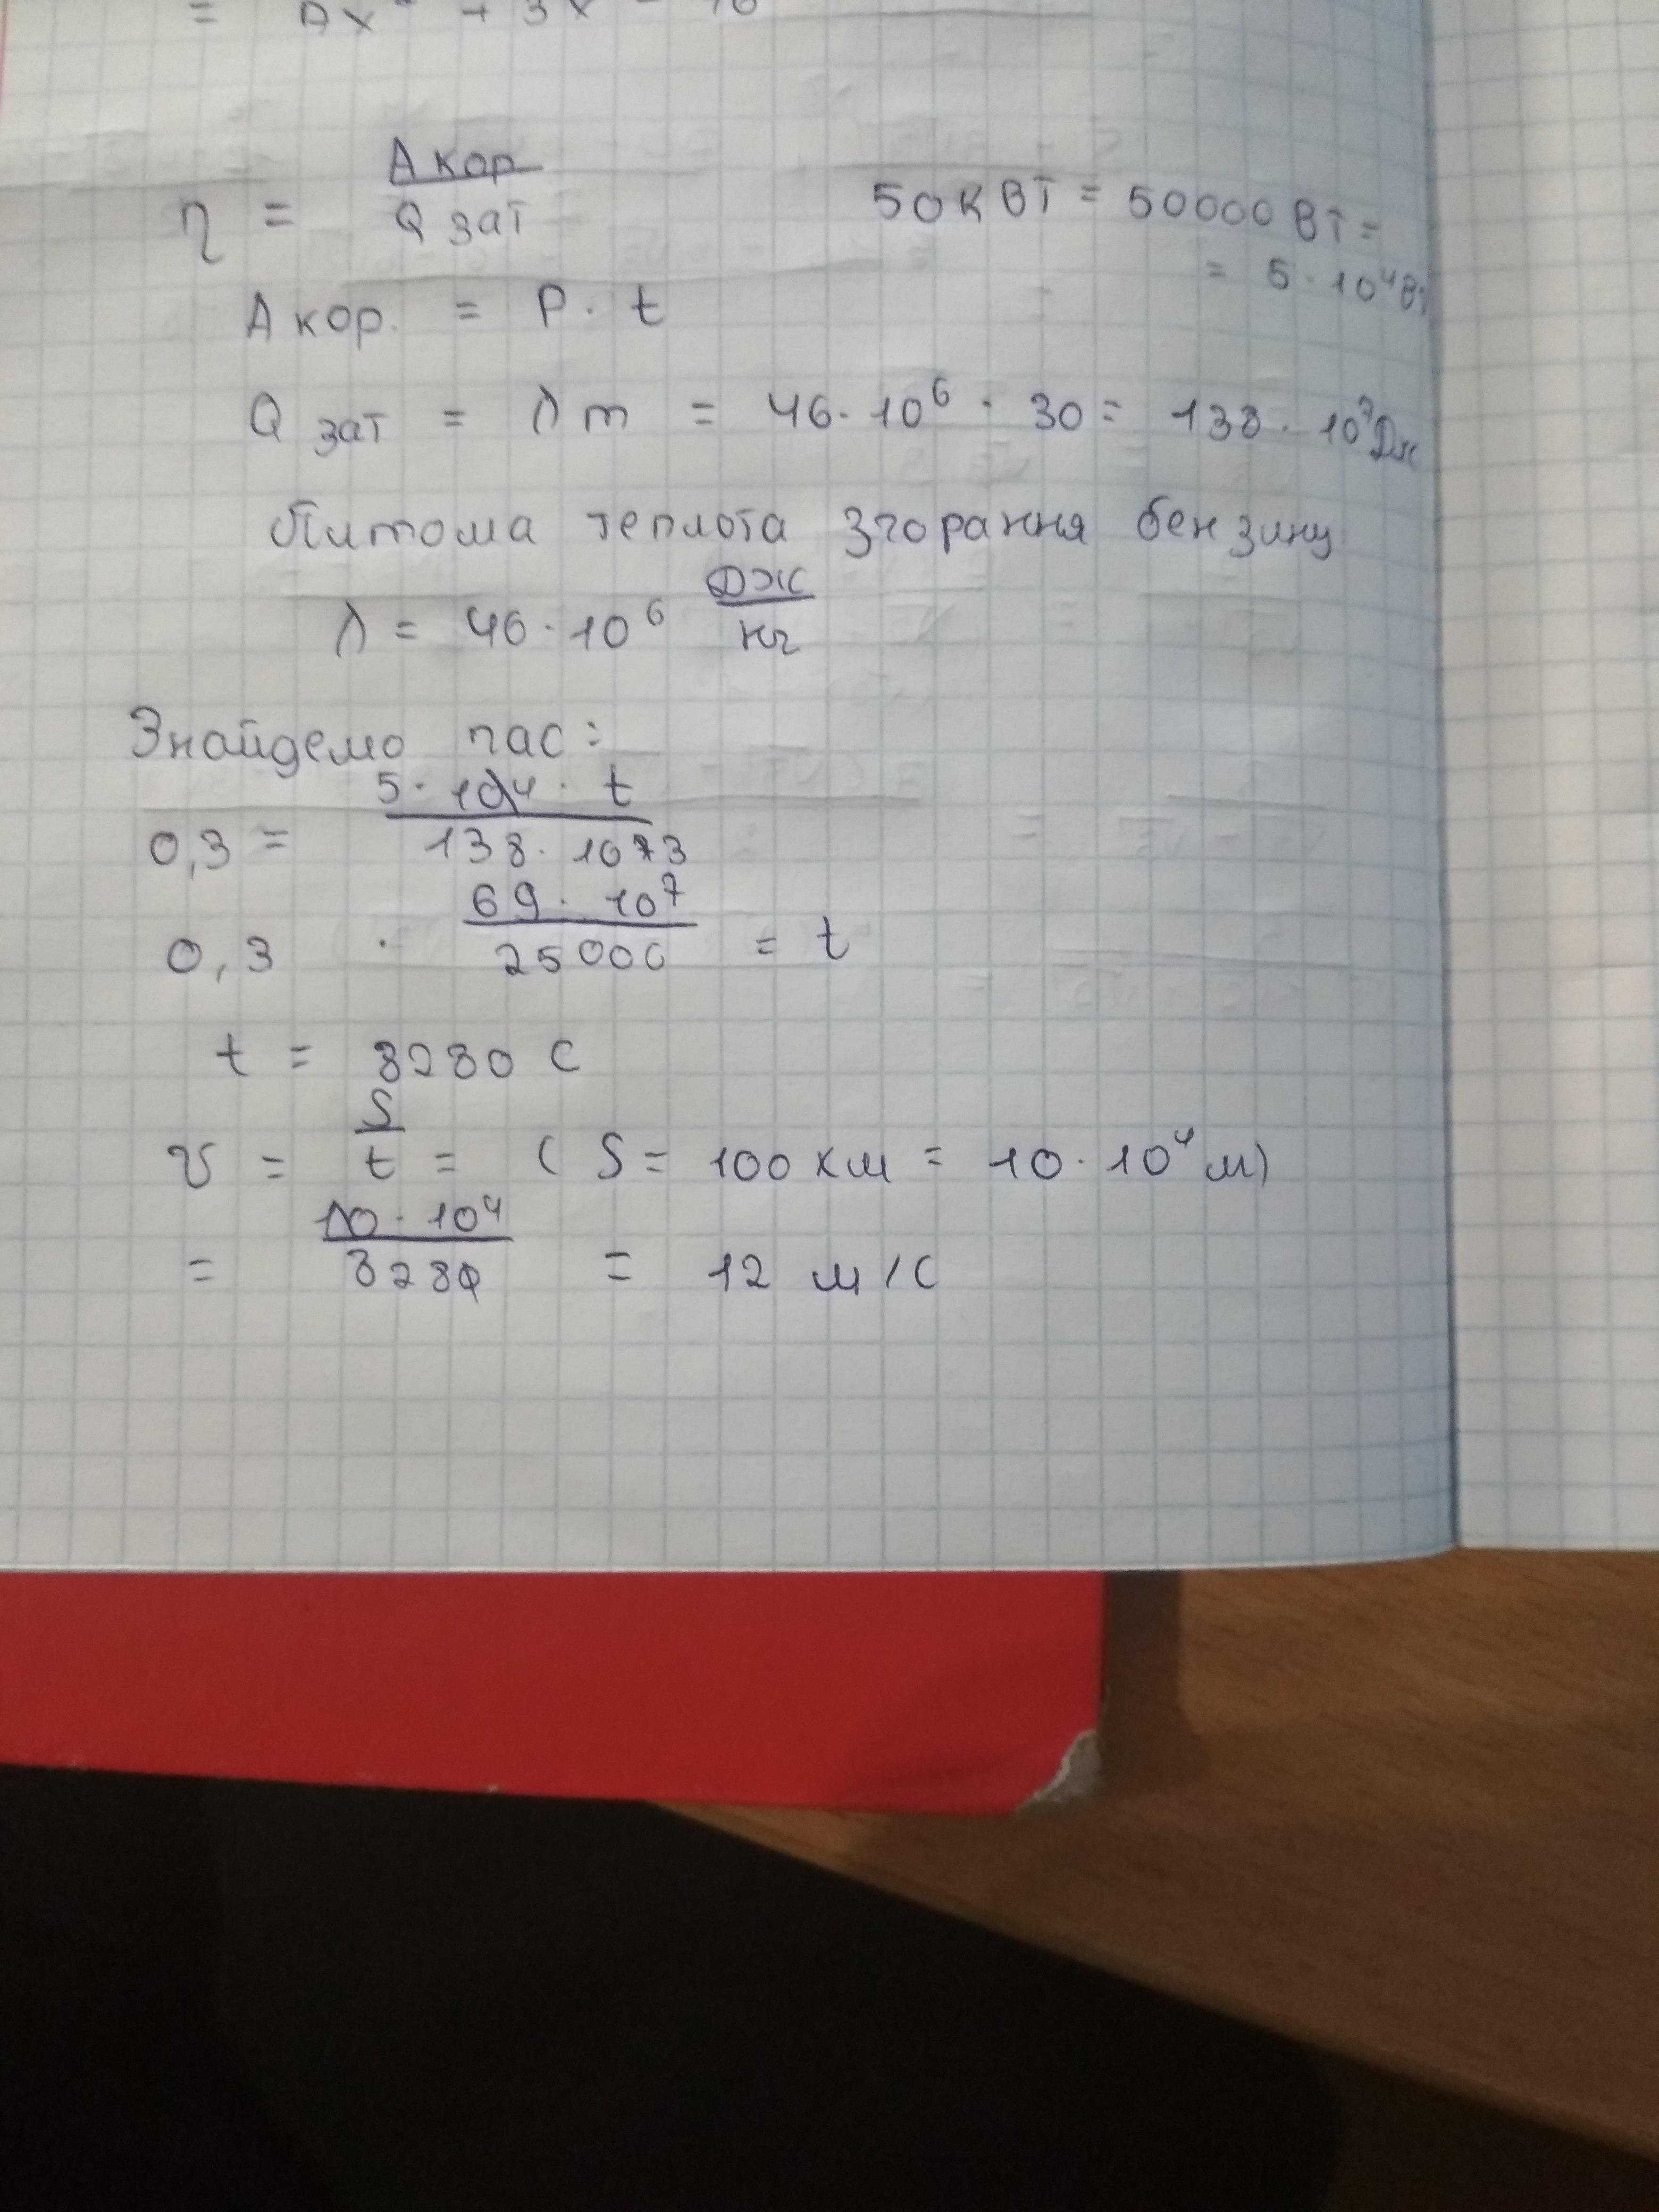 = Ax² + 3x - 10
η = A кор / Q зат
50 кВт = 50000 Вт =
= 5 · 10⁴ Вт
A кор. = P · t
Q зат = λ m = 46 · 10⁶ · 30 = 138 · 10⁷ Дж
Питома теплота згорання бензину
λ = 46 · 10⁶ Дж / кг
Знайдемо час:
0,3 = 5 · 10⁴ · t / 138 · 10⁷
0,3 · 69 · 10⁷ / 25000 = t
t = 8280 с
v = S / t = ( S = 100 км = 10 · 10⁴ м)
= 10 · 10⁴ / 8280 = 12 м/с